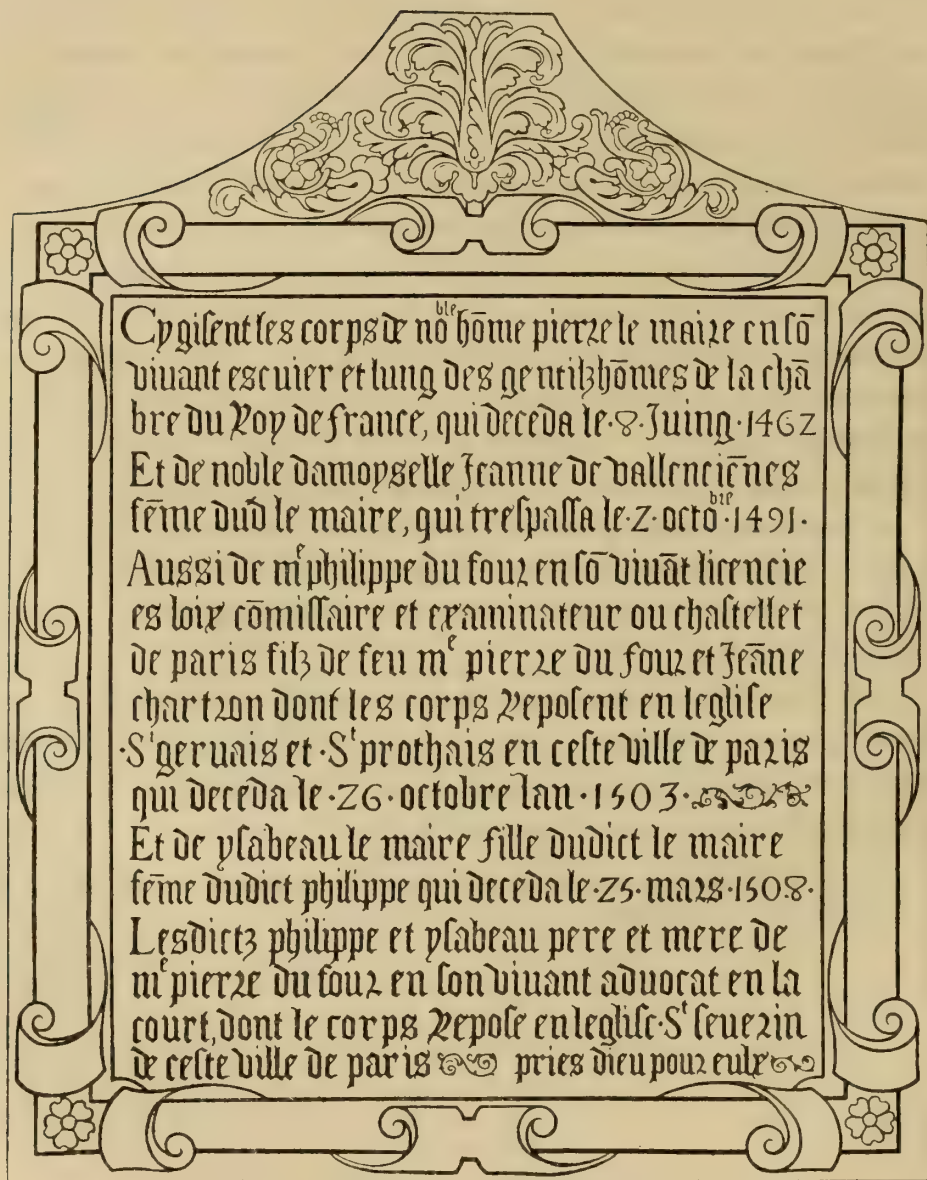 Cy gisent les corps de no^ble hōme pierre le maire en sō
viuant escuier et lung des gentilzhōmes de la chā
bre du Roy de france, qui deceda le·8·Juing·1462
Et de noble damoyselle Jeanne de vallenciēnes
fēme dud̄ le maire, qui trespassa le·2·octo^bre·1491·
Aussi de m^e philippe du four en sō viuāt licencie
es loix cōmissaire et examinateur ou chastellet
de paris filz de feu m^e pierre du four et Jeāne
chartron dont les corps Reposent en leglise
·S^t geruais et·S^t prothais en ceste ville de paris
qui deceda le·26·octobre lan·1503·
Et de ysabeau le maire fille dudict le maire
fēme dudict philippe qui deceda le·25·mars·1508·
Lesdictz philippe et ysabeau pere et mere de
m^e pierre du four en son viuant aduocat en la
court, dont le corps Repose en leglise·S^t seuerin
de ceste ville de paris pries dieu pour eulx